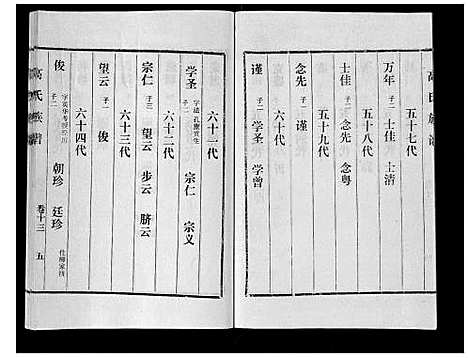 五十七代
万年 子二 士佳 士清
五十八代
士佳 子二 念先 念粤
五十九代
念先 子一 谨
六十代
谨 子二 学圣 学曾
六十一代
学圣 子二 宗仁 宗义
六十二代
宗仁 子三 望云 步云 脐云
六十三代
望云 子一 俊
六十四代
俊 子二 朝珍 廷珍
卷十三 五